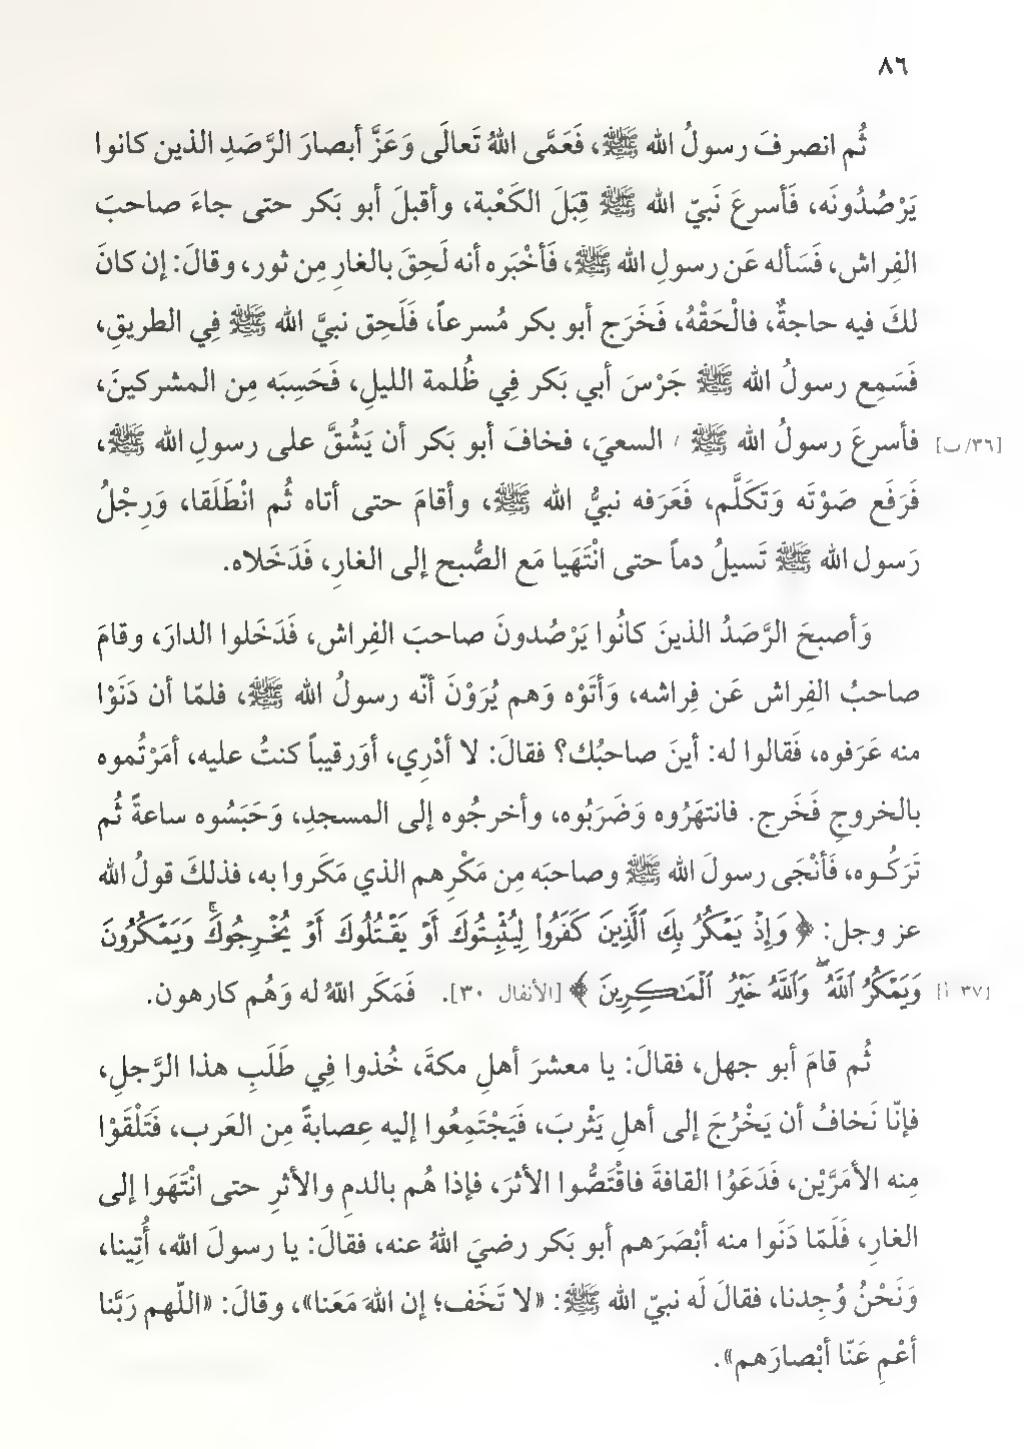 ٨٦
ثُم انصرفَ رسولُ الله ﷺ، فَعَمَّى اللهُ تَعالَى وَعَزَّ أبصارَ الرَّصَدِ الذين كانوا
يَرْصُدُونَه، فَأسرعَ نَبيّ الله ﷺ قِبَلَ الكَعْبة، وأقبلَ أبو بَكر حتى جاءَ صاحبَ
الفِراش، فَسَأله عَن رسولِ الله ﷺ، فَأخْبَره أنه لَحِقَ بالغارِ مِن ثور، وقالَ: إن كانَ
لكَ فيه حاجةٌ، فالْحَقْهُ، فَخَرَج أبو بكر مُسرعاً، فَلَحِق نبيَّ الله ﷺ فِي الطريقِ،
فَسَمِع رسولُ الله ﷺ جَرْسَ أبي بَكر فِي ظُلمة الليلِ، فَحَسِبَه مِن المشركينَ،
فأسرعَ رسولُ الله ﷺ / السعيَ، فخافَ أبو بَكر أن يَشُقَّ على رسولِ الله ﷺ، [٣٦/ب]
فَرَفَع صَوْتَه وَتَكَلَّم، فَعَرَفه نبيُّ الله ﷺ، وأقامَ حتى أتاه ثُم انْطَلَقا، وَرِجْلُ
رَسول الله ﷺ تَسيلُ دماً حتى انْتَهَيا مَع الصُّبح إلى الغارِ، فَدَخَلاه.
وَأصبحَ الرَّصَدُ الذينَ كانُوا يَرْصُدونَ صاحبَ الفِراش، فَدَخَلوا الدارَ، وقامَ
صاحبُ الفِراش عَن فِراشه، وَأتَوْه وَهم يُرَوْنَ أنّه رسولُ الله ﷺ، فلمّا أن دَنَوْا
منه عَرَفوه، فَقالوا له: أينَ صاحبُك؟ فقالَ: لا أدْرِي، أوَرقيباً كنتُ عليه، أمَرْتُموه
بالخروجِ فَخَرج. فانتهَرُوه وَضَرَبُوه، وأخرجُوه إلى المسجدِ، وَحَبَسُوه ساعةً ثُم
تَرَكُـوه، فَأنْجَى رسولَ الله ﷺ وصاحبَه مِن مَكْرِهم الذي مَكَروا به، فذلكَ قولُ الله
عز وجل: ﴿ وَإِذْ يَمْكُرُ بِكَ ٱلَّذِينَ كَفَرُوا۟ لِيُثْبِتُوكَ أَوْ يَقْتُلُوكَ أَوْ يُخْرِجُوكَ ۚ وَيَمْكُرُونَ
وَيَمْكُرُ ٱللَّهُ ۖ وَٱللَّهُ خَيْرُ ٱلْمَـٰكِرِينَ ﴾ [الأنفال ٣٠]. فَمَكَر اللهُ له وَهُم كارهون. [٣٧ أ]
ثُم قامَ أبو جهل، فقالَ: يا معشرَ أهلِ مكةَ، خُذوا فِي طَلَبِ هذا الرَّجلِ،
فإنّا نَخافُ أن يَخْرُجَ إلى أهلِ يَثْربَ، فَيَجْتَمِعُوا إليه عِصابةً مِن العَرب، فَتَلْقَوْا
مِنه الأمَرَّيْن، فَدَعَوُا القافةَ فاقْتَصُّوا الأثرَ، فإذا هُم بالدمِ والأثرِ حتى انْتَهَوا إلى
الغارِ، فَلَمّا دَنَوا منه أبْصَرَهم أبو بَكر رضيَ اللهُ عنه، فقالَ: يا رسولَ الله، أُتِينا،
وَنَحْنُ وُجِدنا، فقالَ لَه نبيّ الله ﷺ: «لا تَخَف؛ إن اللهَ مَعَنا»، وقالَ: «اللّهم رَبَّنا
أعْمِ عَنّا أبْصارَهم».